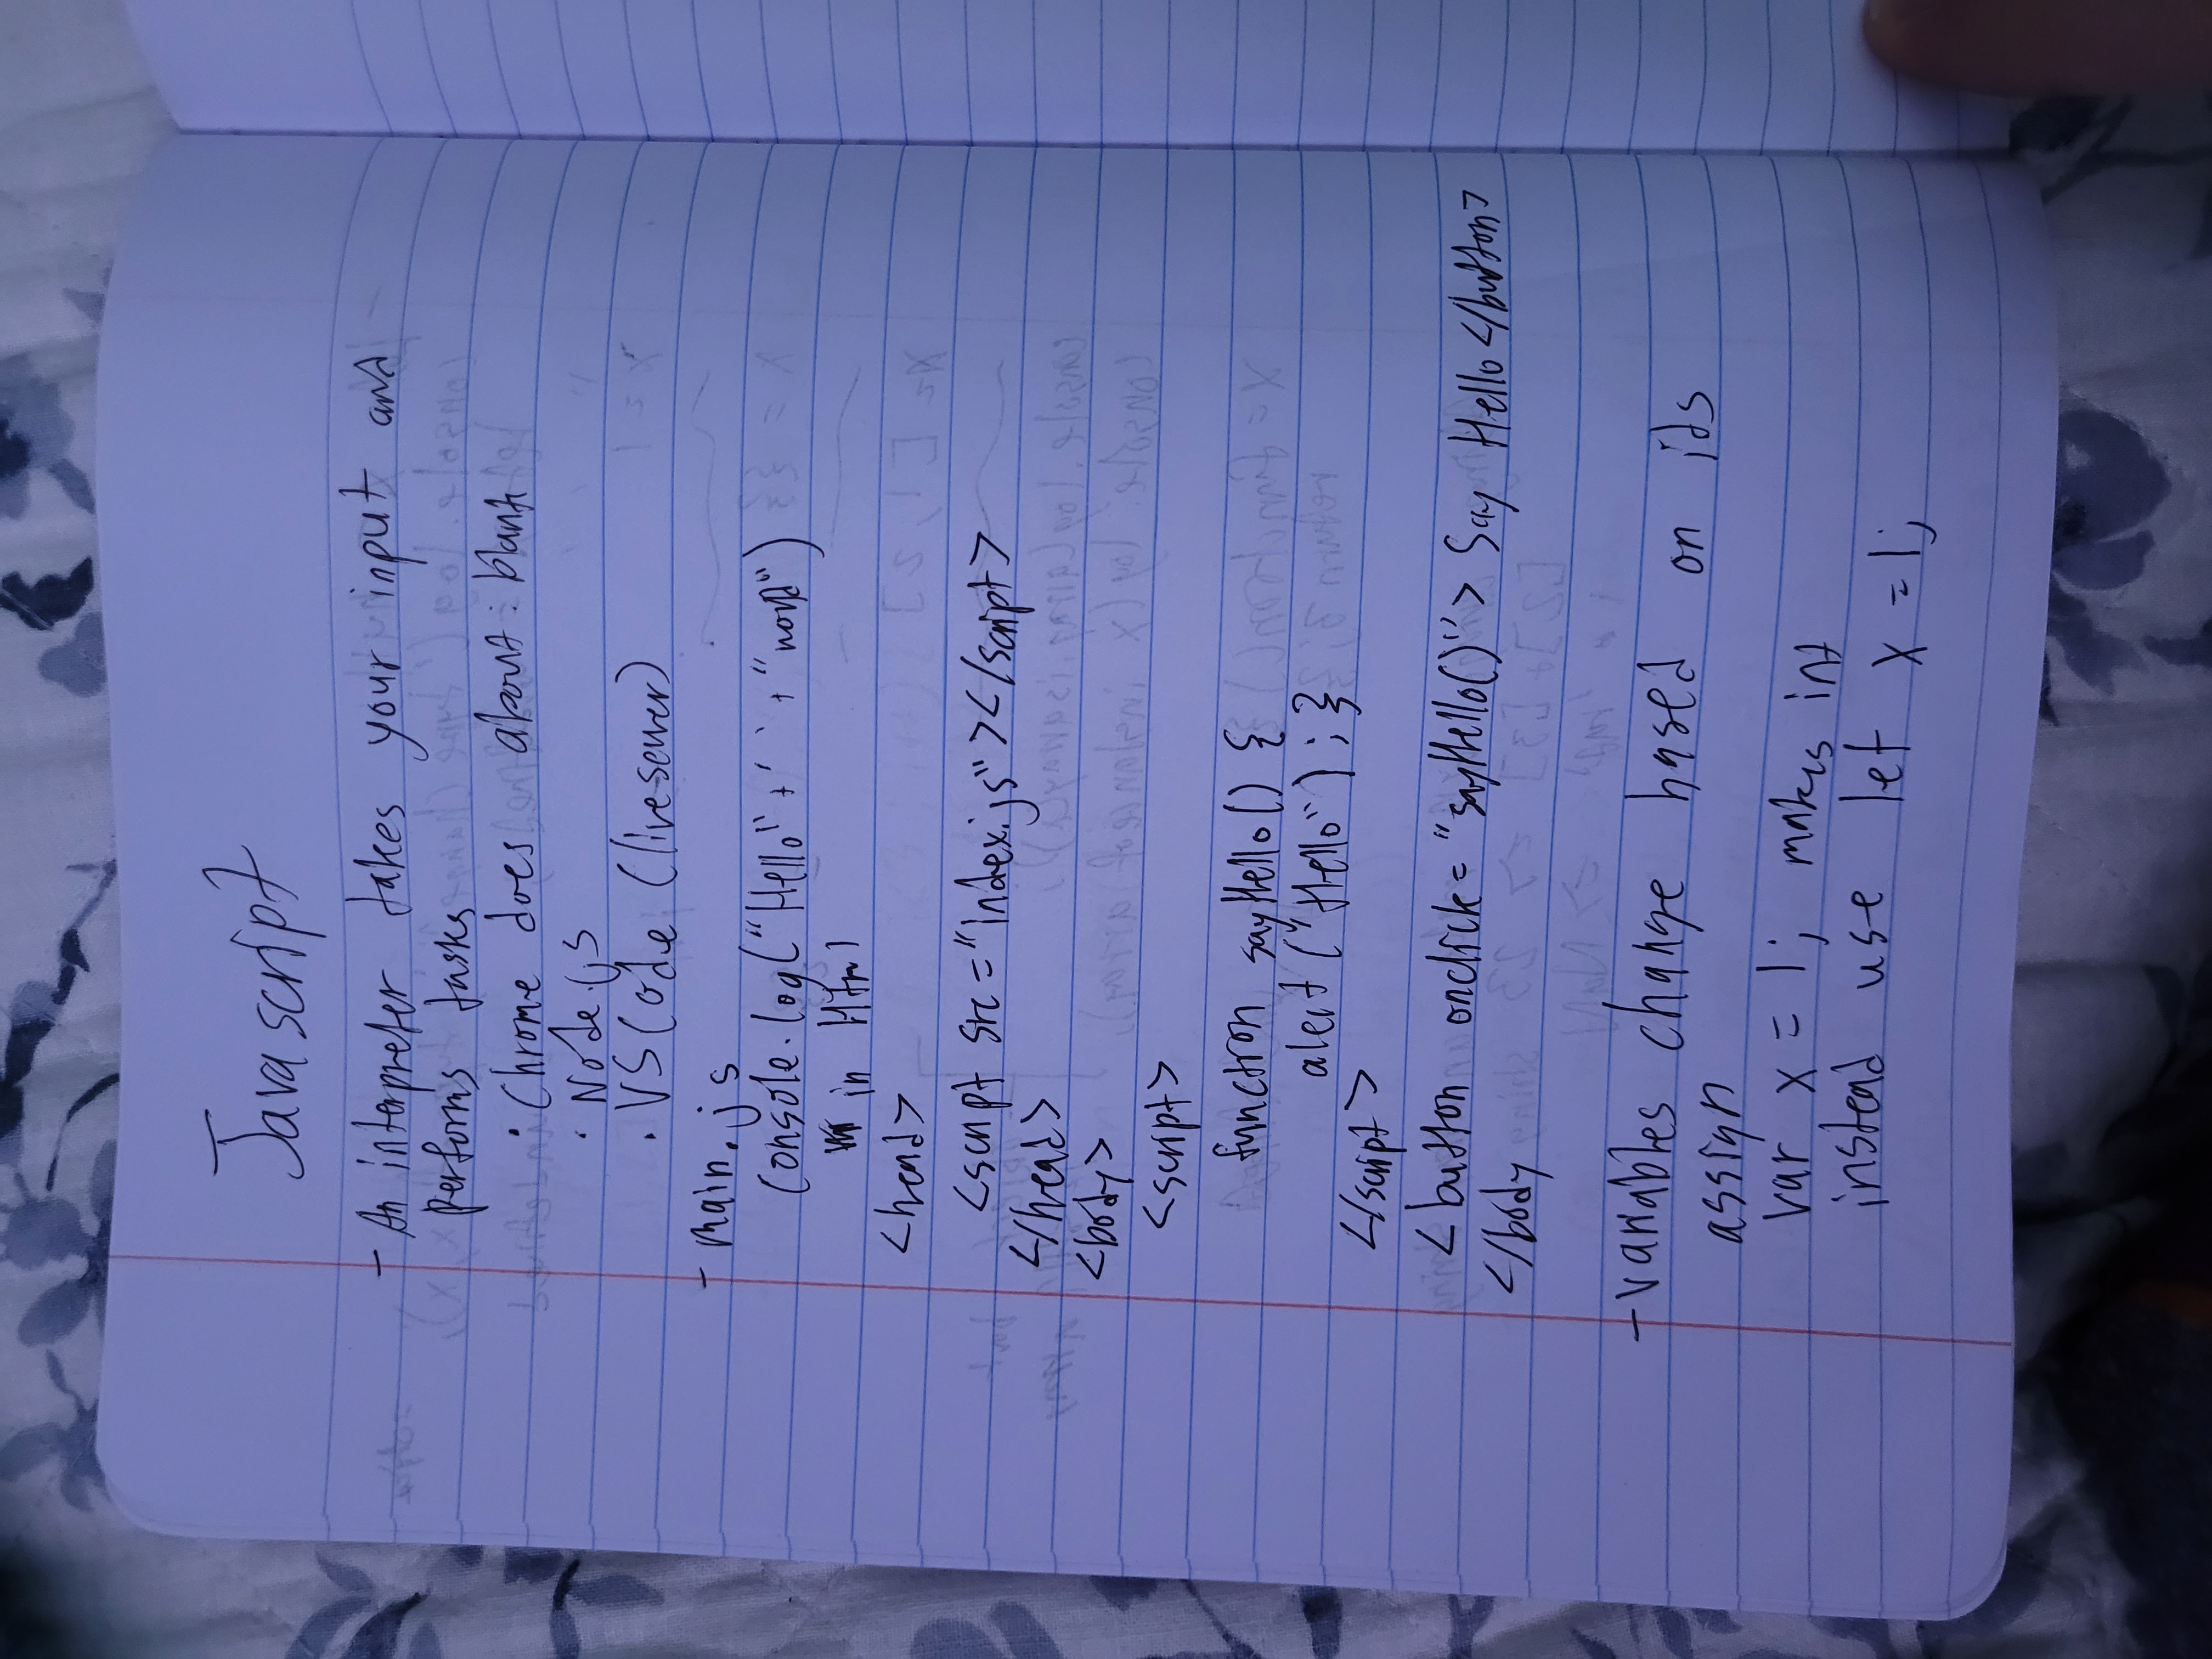 Javascript
- An interpreter takes your input and
performs tasks
· Chrome does about:blank
· Node.js
· VS Code (liveserver)
- main.js
Console.log("Hello" + ' ' + "world")
in Html
<head>
<script src="index.js"></script>
</head>
<body>
<script>
function sayHello() {
alert("Hello");}
</script>
<button onclick="sayHello()"> Say Hello</button>
</body
- variables change based on its
assign
var x = 1; makes int
instead use let x = 1;